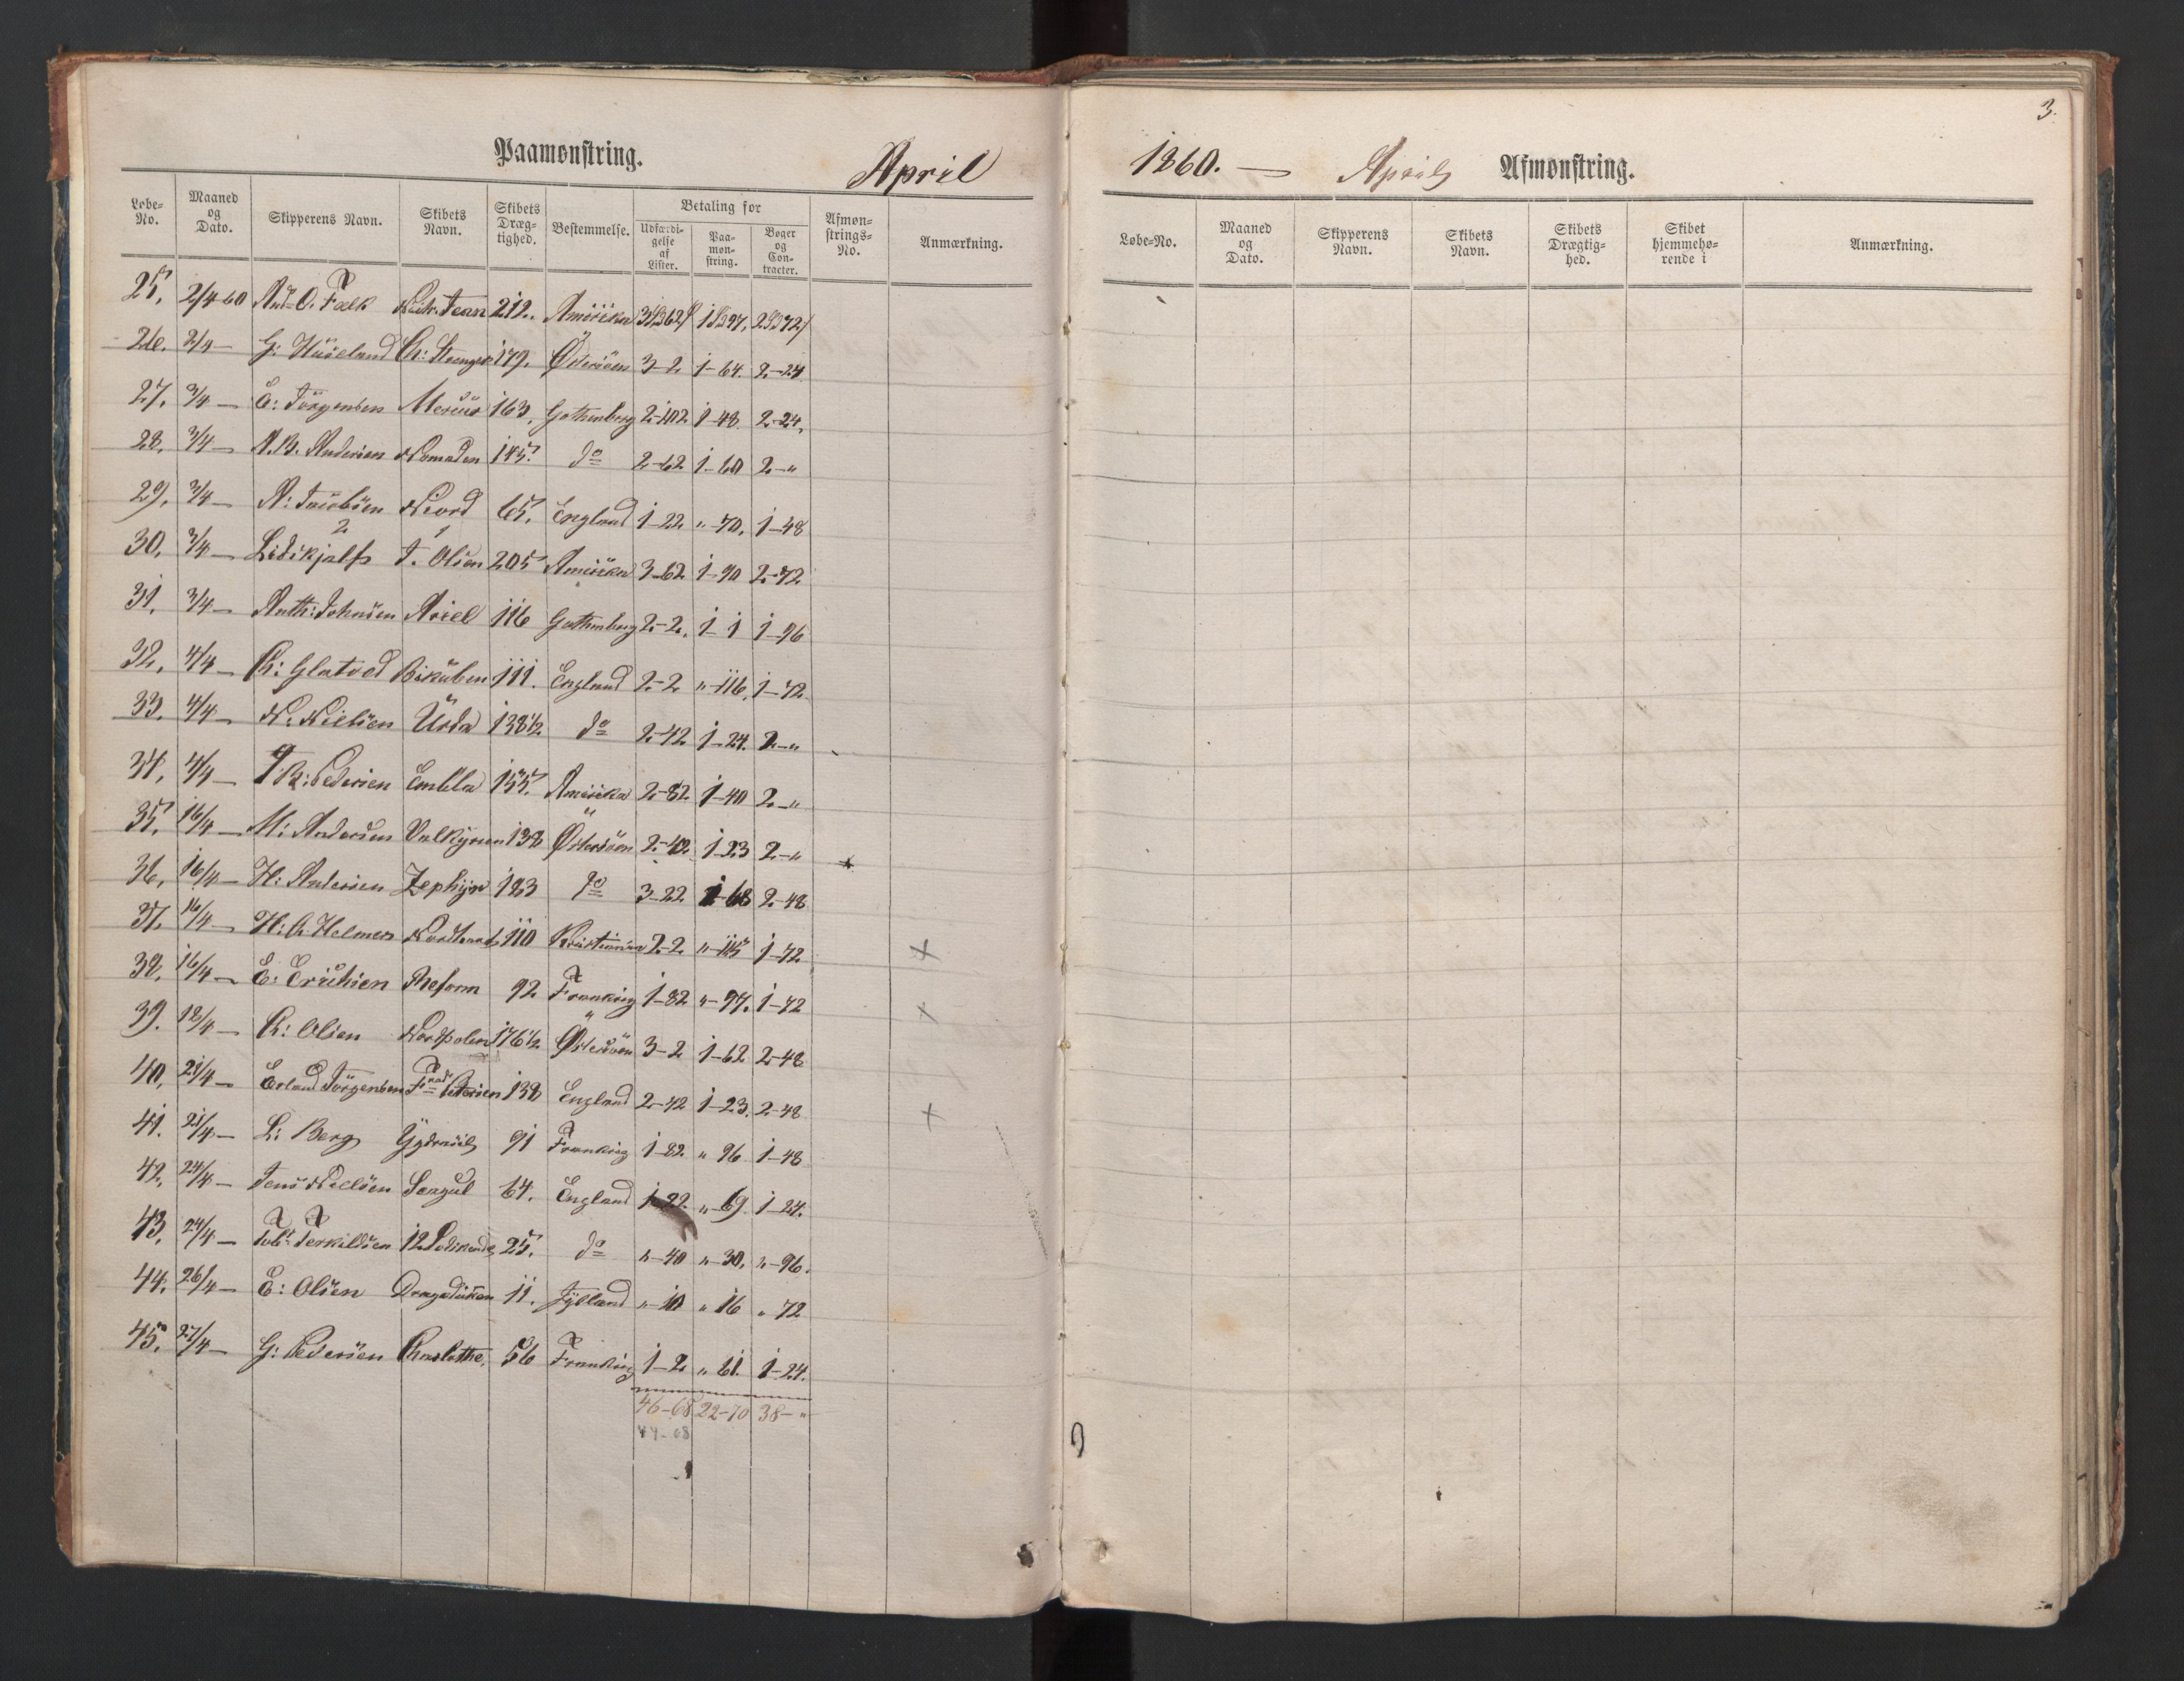 Paamønstring. April
Løbe-No. Maaned og Dato. Skipperens Navn. Skibets Navn. Skibets Dræg-tighed. Bestemmelse. Betaling for Udfærdi-gelse af Lister. Paa-møn-string. Bøger og Con-tracter. Afmøn-strings-No. Anmærkning.
25. 2/4-60 O. Falk 212. Amerika
26. 2/4 - G: 179. Østersöen 3-2 1-64. 2-24
27. 3/4 - E: Jörgensen Mercur 163. Gothenborg 2-102 1-48. 2-24.
28. 3/4 - A.B. Andersen Nomaden 145. do 2-62 1-60 2-"
29. 3/4 - A: Jacobsen Niord 65. England 1-22 "-70. 1-48
30. 3/4 - Lidskjalf 2 T. Olsen 1 205 Amerika 3-62 1-90 2-72
31. 3/4 - Anth: Johnsen Ariel 116 Gothenborg 2-2. 1-1 1-96
32. 4/4 - Bikuben 111. England 2-2 "-116. 1-72
33. 4/4 - N. Nielsen Urda 138 1/2 do 2-42 1-24. 2-"
34. 4/4 - Pedersen Embla 155. Amerika 2-82 1-40 2-"
35. 16/4 - M: Andersen Valkyrien 138 Östersöen 2-42. 1-23 2-"
36. 16/4 - H: Andersen Zephyr 183 do 3-22 1-68 2-48
37. 16/4 - H: C. Helmers 110 2-2 "-115 1-72 +
38. 16/4 - E: Erichsen Reform 92 Frankrig 1-82 "-97. 1-72
39. 18/4 - Olsen Nordpolen 176 1/2 Östersöen 3-2 1-62 2-48
40. 21/4 - Erland Jörgensen Petersen 138 England 2-42 1-23. 2-48
41. 21/4 - L: Berg 91 Frankrig 1-82 " 96 1-48
42. 24/4 - Jens Neelsen 64. England 1-22. "-69. 1-24.
43. 24/4 - Terkildsen 12 Sødskende 25. do "-40 "-30. "-96.
44. 26/4 - E: Olsen 11. Jylland "-10 " 16 " 72
45. 27/4 - G: Pedersen Charlothe. 56 Frankrig 1-2 " 61. 1-24.
46-68 22-70 38-"
44-68
3.
1860. - April Afmønstring.
Løbe-No. Maaned og Dato. Skipperens Navn. Skibets Navn. Skibets Drægtig-hed. Skibet hjemmehø-rende i Anmærkning.